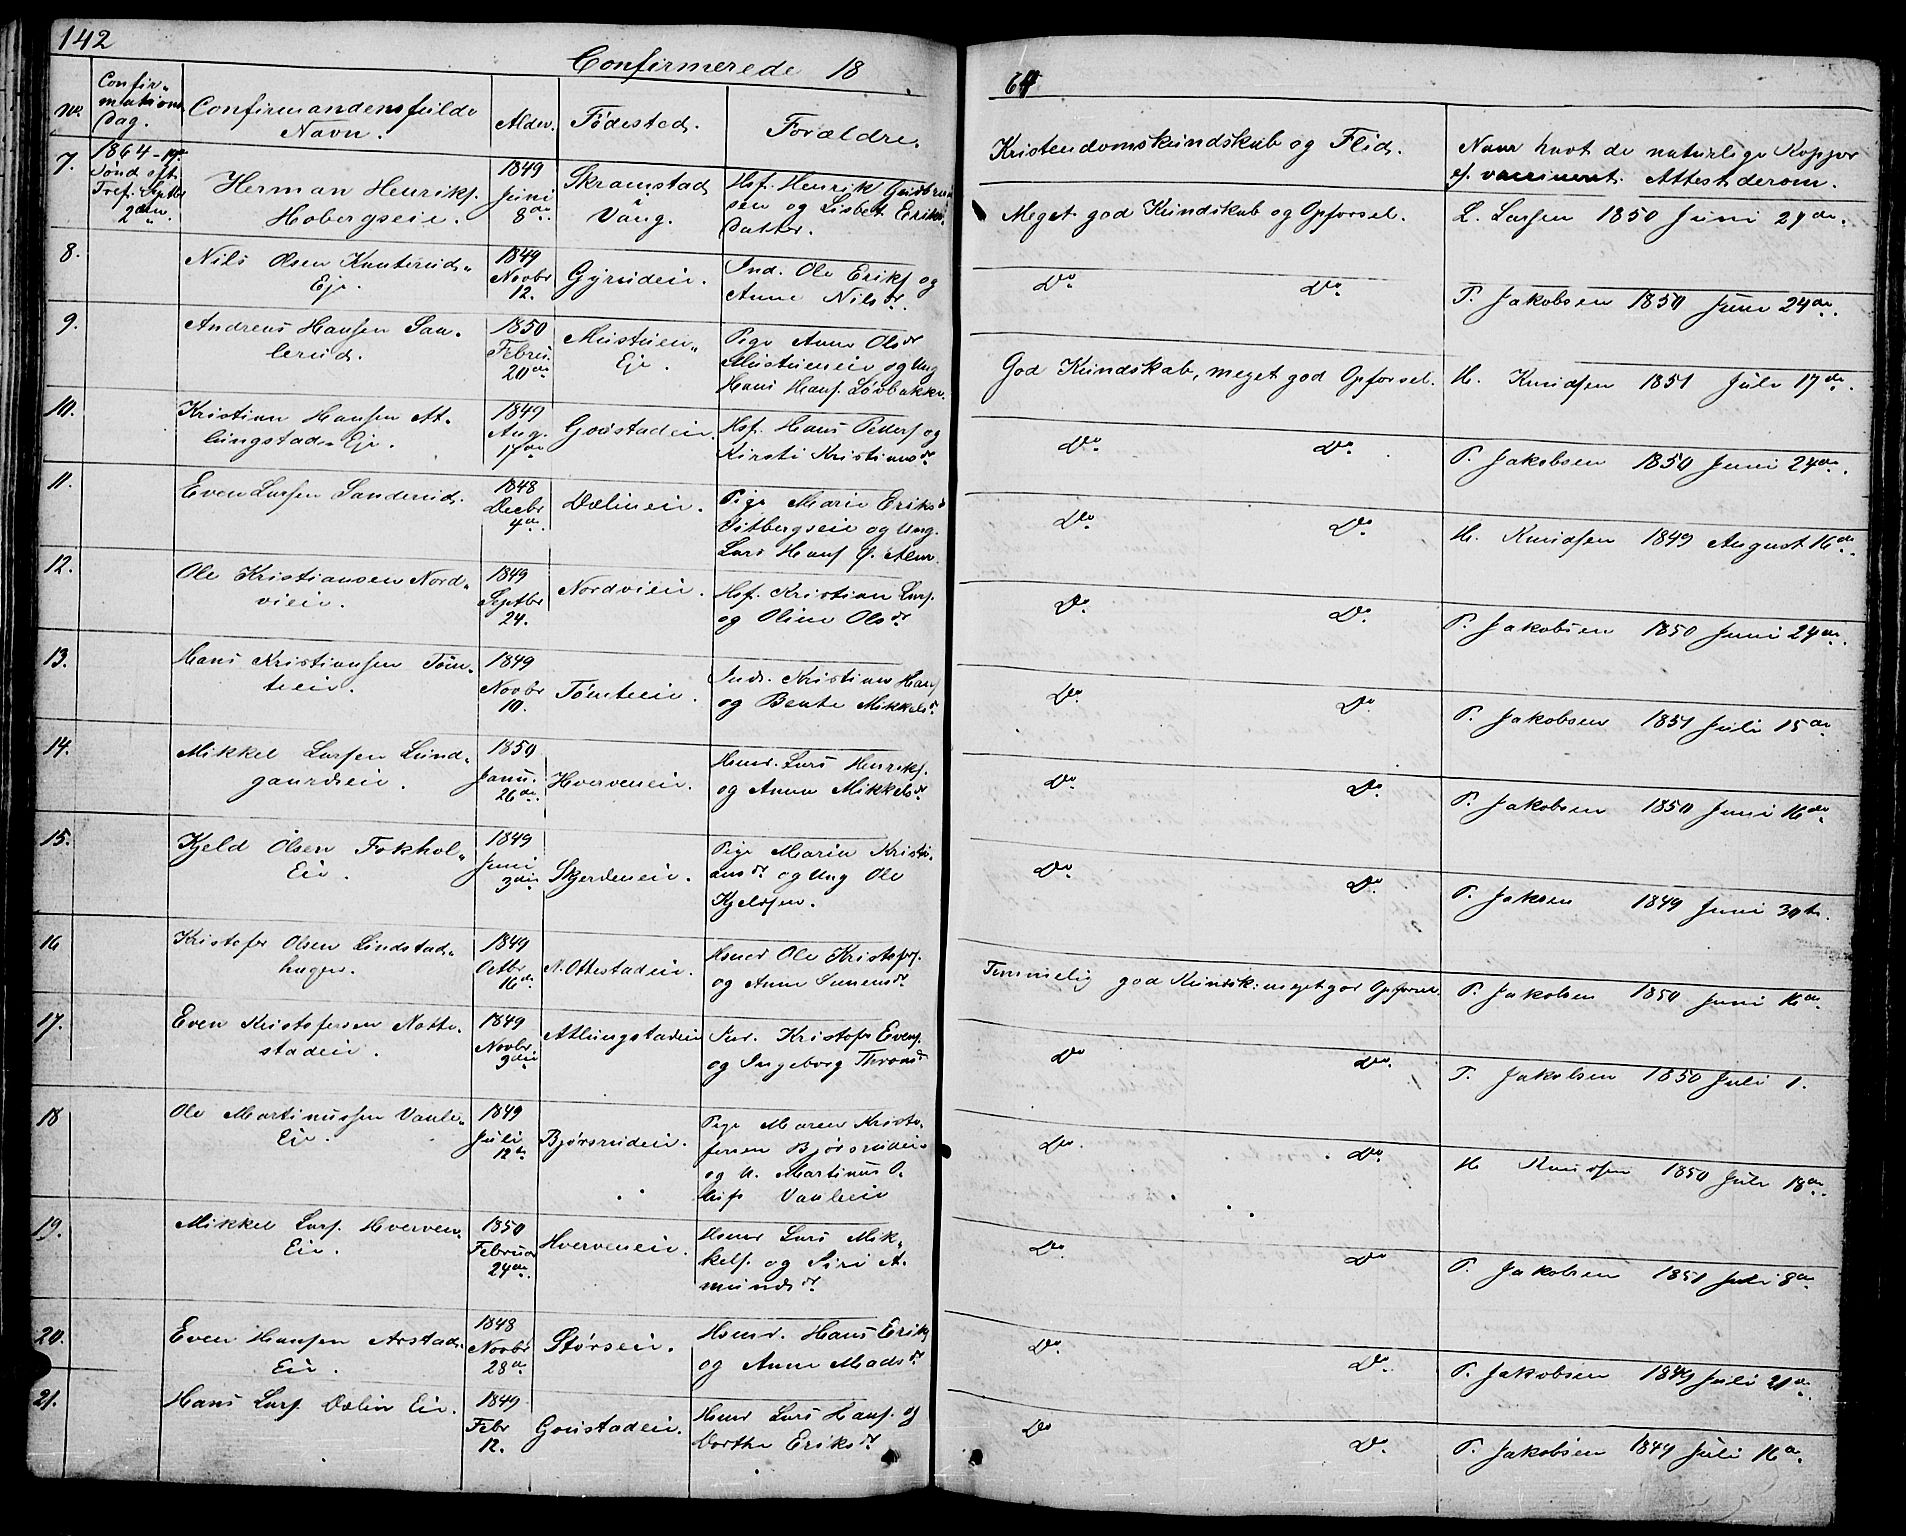 142
Confirmerede 18 64
No.
Confir-
mations
Dag.
Confirmandens fulde
Navn.
Alder.
Fødested.
Forældre.
Kristendomskundskab og Flid.
Naar havt de naturlige Kopper
el. vaccineret. Attest derom.
7.
1864 - 19
Sønd eft.
Tref. Septbr
2den.
Herman Henriks.
Hobergseie.
1849
Juni
8de.
Skramstad
i
Vang.
Hsf. Henrik Gudbrand
sen og Lisbet Eriks
Datter.
Meget god Kundskab og Opførsel.
L. Larsen 1850 Juni 24de.
8.
Nils Olsen Knuterud-
Eje.
1849
Novbr
12.
Gyrudeie.
Ind. Ole Eriks. og
Anne Nilsdr.
Do. Do.
P. Jakobsen 1850 Juni 24de.
9.
Andreas Hansen San-
lerud.
1850
Febru.
20de
Mustuen-
Eje.
Pige Anne Olsdr
Mustueneie og Ung
Hans Hans. Løvbakke.
God Kundskab, meget god Opførsel.
H. Knudsen 1851 Juli 17de.
10.
Kristian Hansen At-
lungstad-Eje.
1849
Aug.
17de
Goustadeie.
Hsf. Hans Peders. og
Kirsti Kristiansdr.
Do. Do.
P. Jakobsen 1850 Juni 24de.
11.
Even Larsen Sanderud.
1848
Decbr
4de.
Dælineie.
Pige Marie Eriksd
Sitbergseie og Ung.
Lars Hans. Alm.
Do. Do.
H. Knudsen 1849 August 16de.
12.
Ole Kristiansen Nord-
vieie.
1849
Septbr
24.
Nordvieie.
Hsf. Kristian Lars.
og Oline Olsdr.
Do. Do.
P. Jakobsen 1850 Juni 24de.
13.
Hans Kristiansen Tøm-
teeie.
1849
Novbr
10.
Tømteeie.
Inds. Kristian Hans
og Beate Mikkelsdr.
Do. Do.
P. Jakobsen 1851 Juli 15de
14.
Mikkel Larsen Lund-
gaardseie.
1850
Janu.
26de.
Hverveneie.
Hsmd. Lars Henriks.
og Anne Mikkelsdr.
Do. Do.
P. Jakobsen 1850 Juni 16de
15.
Kjeld Olsen Fokhol-
Eie.
1849
Juni
3die
Skjerdeneie.
Pige Marie Kristi-
ansdr og Ung Ole
Kjeldsen.
Do. Do.
P. Jaksen 1849 Juni 30te.
16
Kristofer Olsen Lindstad-
hagen.
1849
Octbr
16de
N. Ottestadeie.
Hsmd Ole Kristofs.
og Anne Simensdr.
Temmelig god Kundsk: meget god Opførsel.
P. Jakobsen 1850 Juni 16de
17.
Even Kristofersen Notte-
stadeie.
1849
Novbr.
9die
Atlungstadeie
Ind. Kristofer Evens.
og Ingeborg Thronsdr
Do Do.
P. Jakobsen 1850 Juli 1.
18
Ole Martinussen Vaale-
Eie.
1849
Juli
12te
Bjørsrudeie.
Pige Maren Kristo-
fersen Bjørsrudeie
og U. Martinus O-
Vaaleeie
Do. Do.
H Knudsen 1850 Juli 18de.
19.
Mikkel Lars. Hverven-
Eie.
1850
Februar
24de.
Hverveneie.
Hsmd Lars Mik-
kels. og Siri A-
mundsdr.
Do. Do
P. Jakobsen 1851 Juli 8de
20.
Even Hansen Arstad-
Eie.
1848
Novbr
28de.
Størseie.
Hsmd. Hans Eriks
og Anne Madsdr.
Do. Do.
P. Jakobsen 1849 Juli 21de.
21.
Hans Lars. Dælin Eie.
1849
Febr
12.
Goustadeie.
Hsmd Lars Hans. og
Dorthe Eriksdr.
Do Do.
P. Jakobsen 1849 Juli 16de.